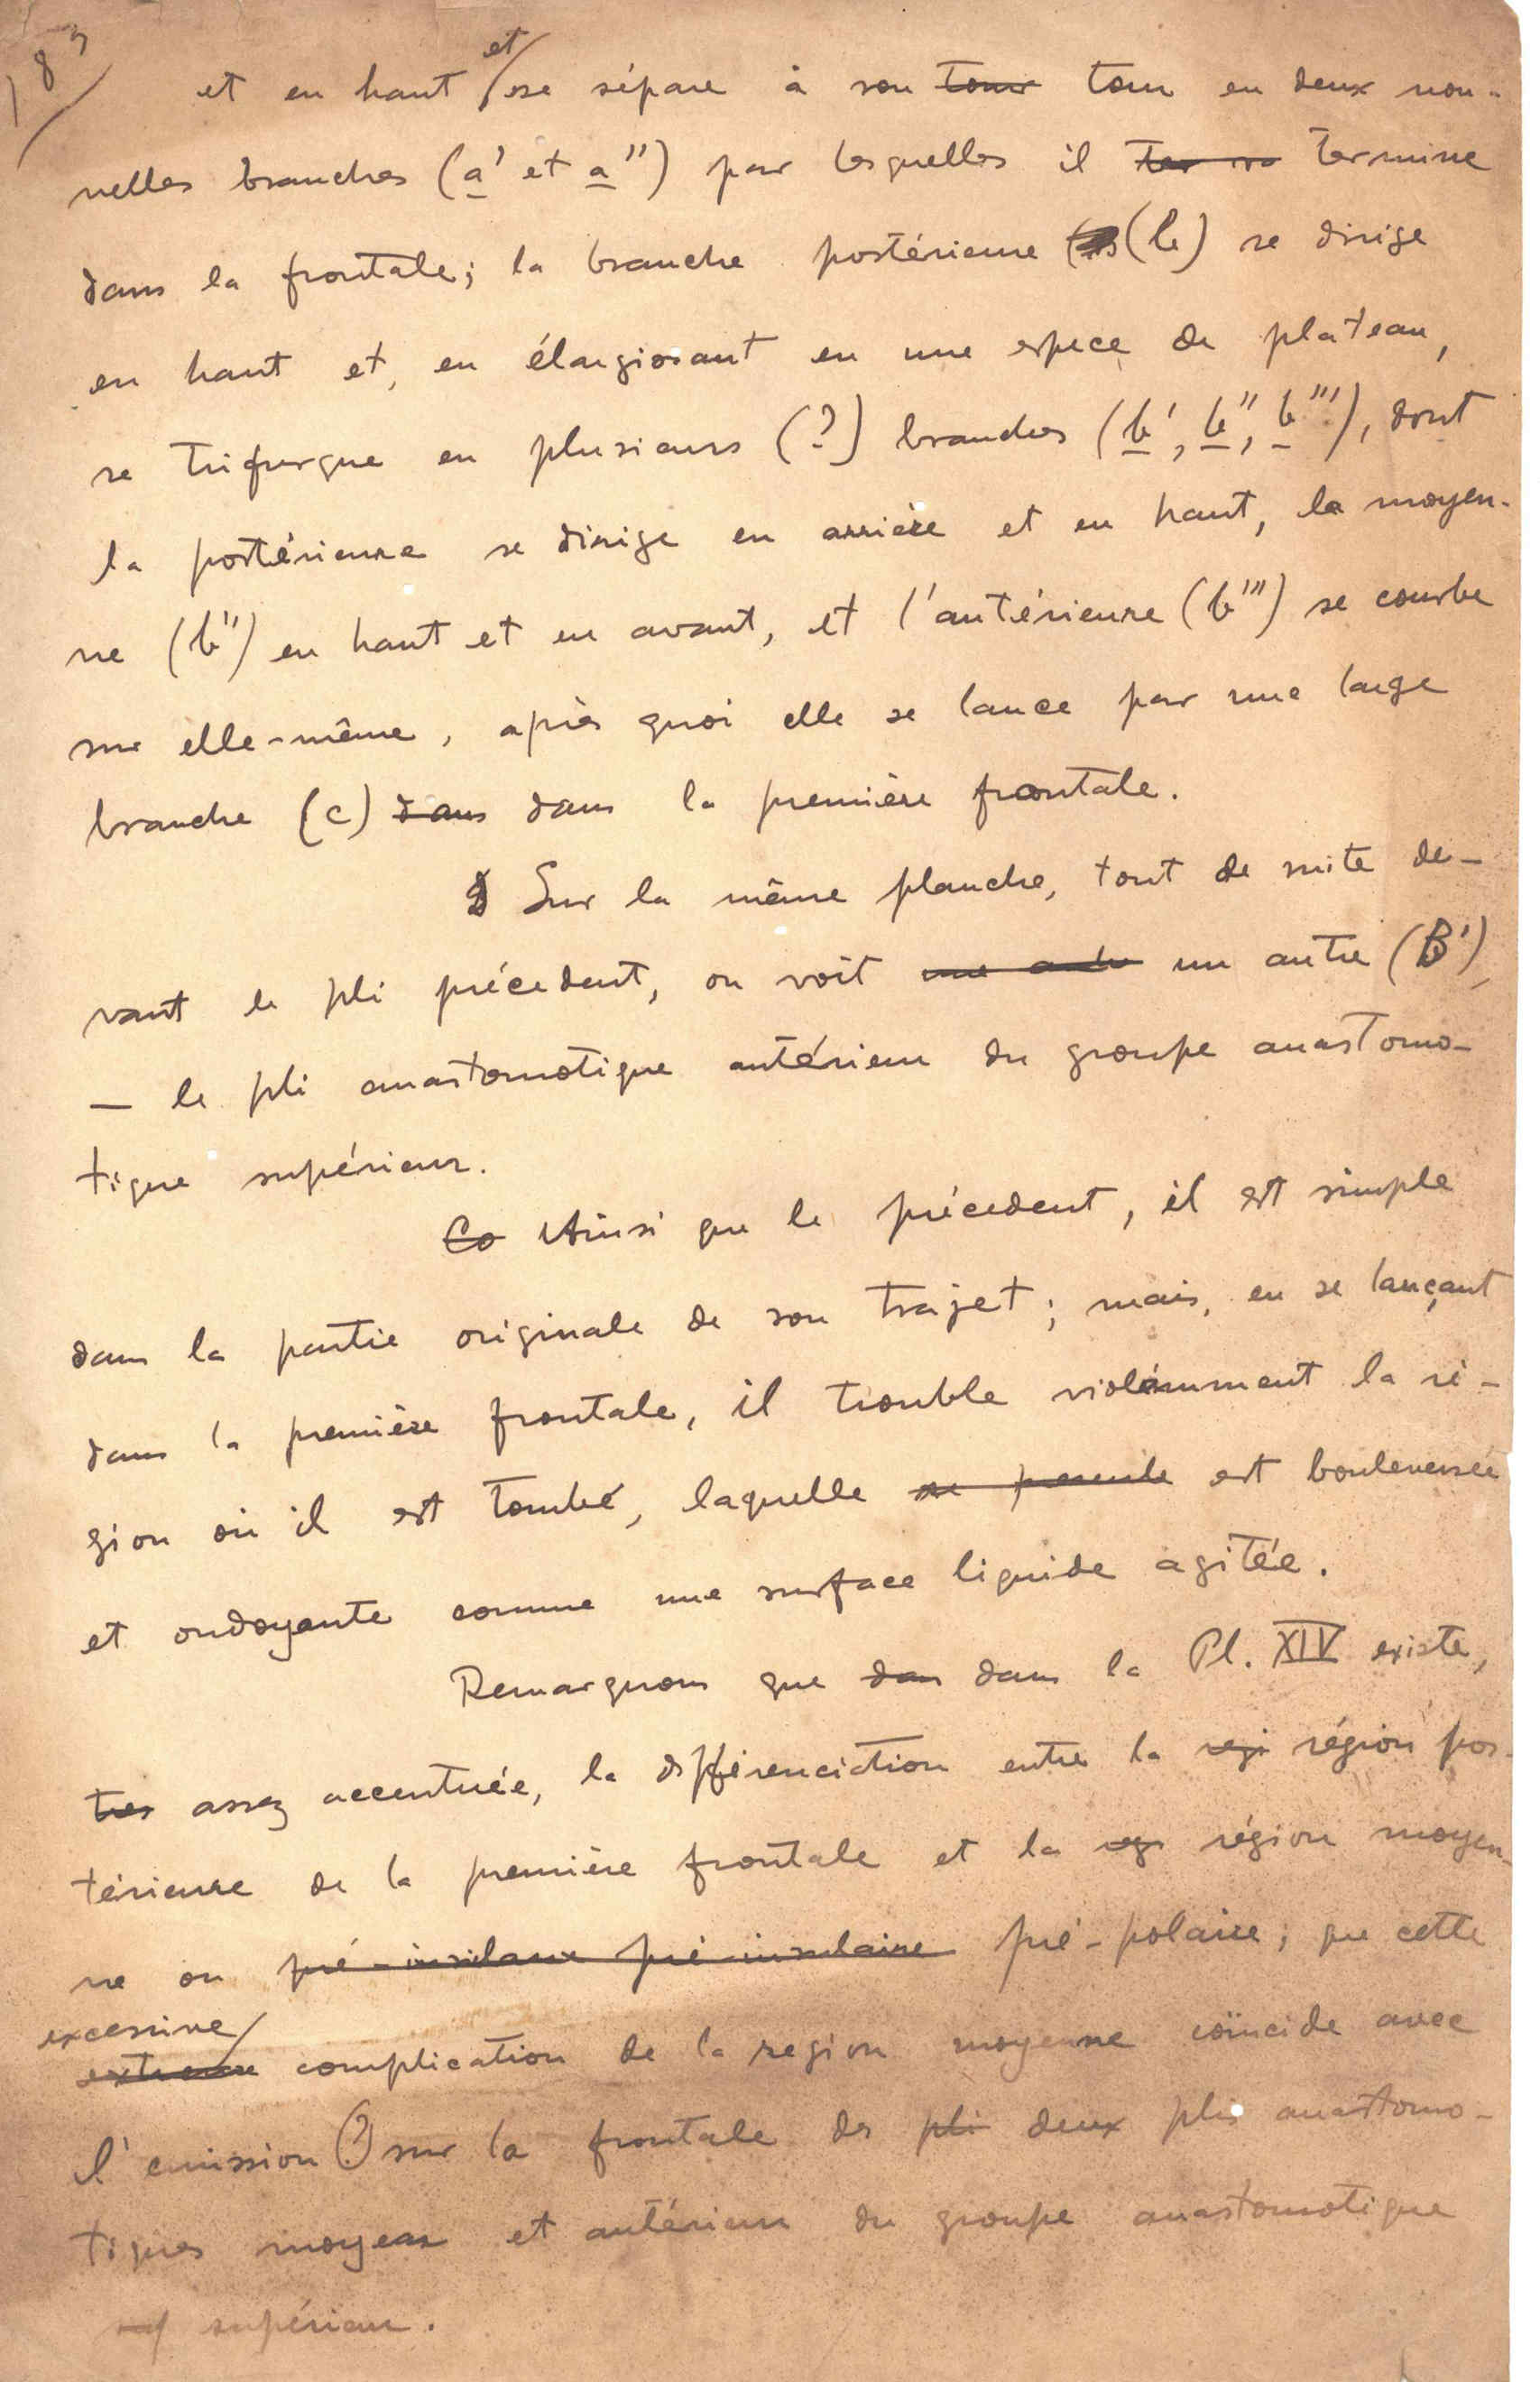 183
et en haut et se sépare à son tour tour en deux nou-
velles branches (a' et a'') par lesquelles il termine
dans la frontale; la branche postérieure (b) se dirige
en haut et, en élargissant en une espece de plateau,
se trifurque en plusieurs (?) branches (b', b'', b'''), dont
la postérieure se dirige en arrière et en haut, la moyen-
ne (b'') en haut et en avant, et l'antérieure (b''') se courbe
sur elle-même, après quoi elle se lance par une large
branche (c) dans dans la première frontale.
Sur la même planche, tout de suite de-
vant le pli précedent, on voit un autre (B'),
— le pli anastomotique antérieur du groupe anastomo-
tique supérieur.
Co Ainsi que le précedent, il est simple
dans la partie originale de son trajet; mais, en se lançant
dans la première frontale, il trouble violemment la ré-
gion où il est tombé, laquelle est bouleversée
et ondoyante comme une surface liquide agitée.
Remarquons que dan dans la Pl. XIV existe,
tres assez accentuée, la différenciation entre la regi région pos-
térieure de la première frontale et la regi région moyen-
ne ou pré-insulaire pré-insulaire pré-polaire; que cette
excessive
extreme complication de la region moyenne coïncide avec
l'emission sur la frontale des pli deux plis anastomo-
tiques moyens et antérieur du groupe anastomotique
supérieur.